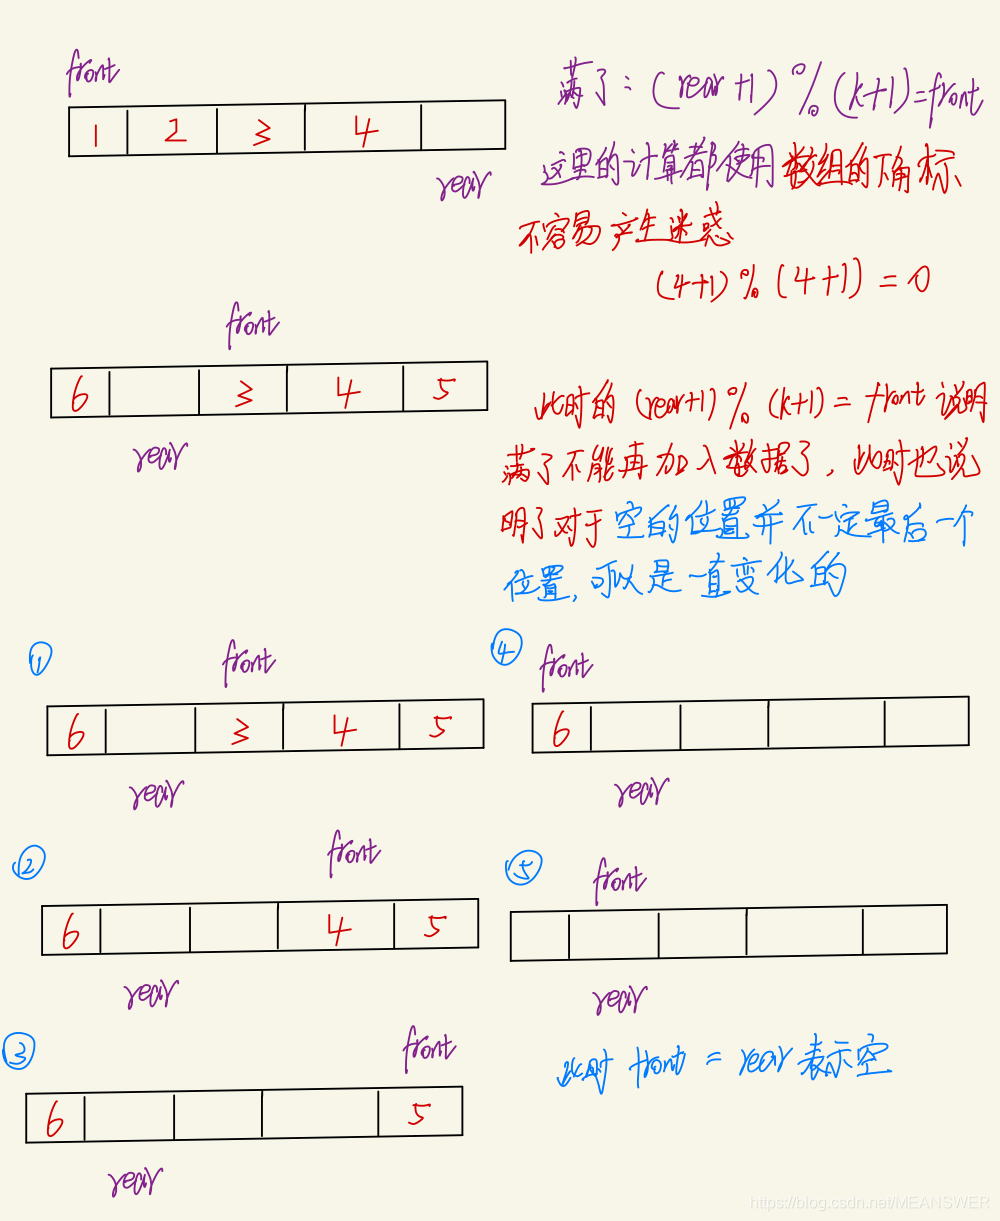 front
1 2 3 4
rear
满了：(rear+1)%(k+1)=front
这里的计算都使用数组的下角标、
不容易产生迷惑
(4+1)%(4+1)=0
front
6 3 4 5
rear
此时的(rear+1)%(k+1)=front说明
满了不能再加入数据了，此时也说
明了对于空的位置并不一定最后一个
位置,可以是一直变化的
①
front
6 3 4 5
rear
②
front
6 4 5
rear
③
front
6 5
rear
④
front
6
rear
⑤
front
rear
此时front=rear表示空
https://blog.csdn.net/MEANSWER